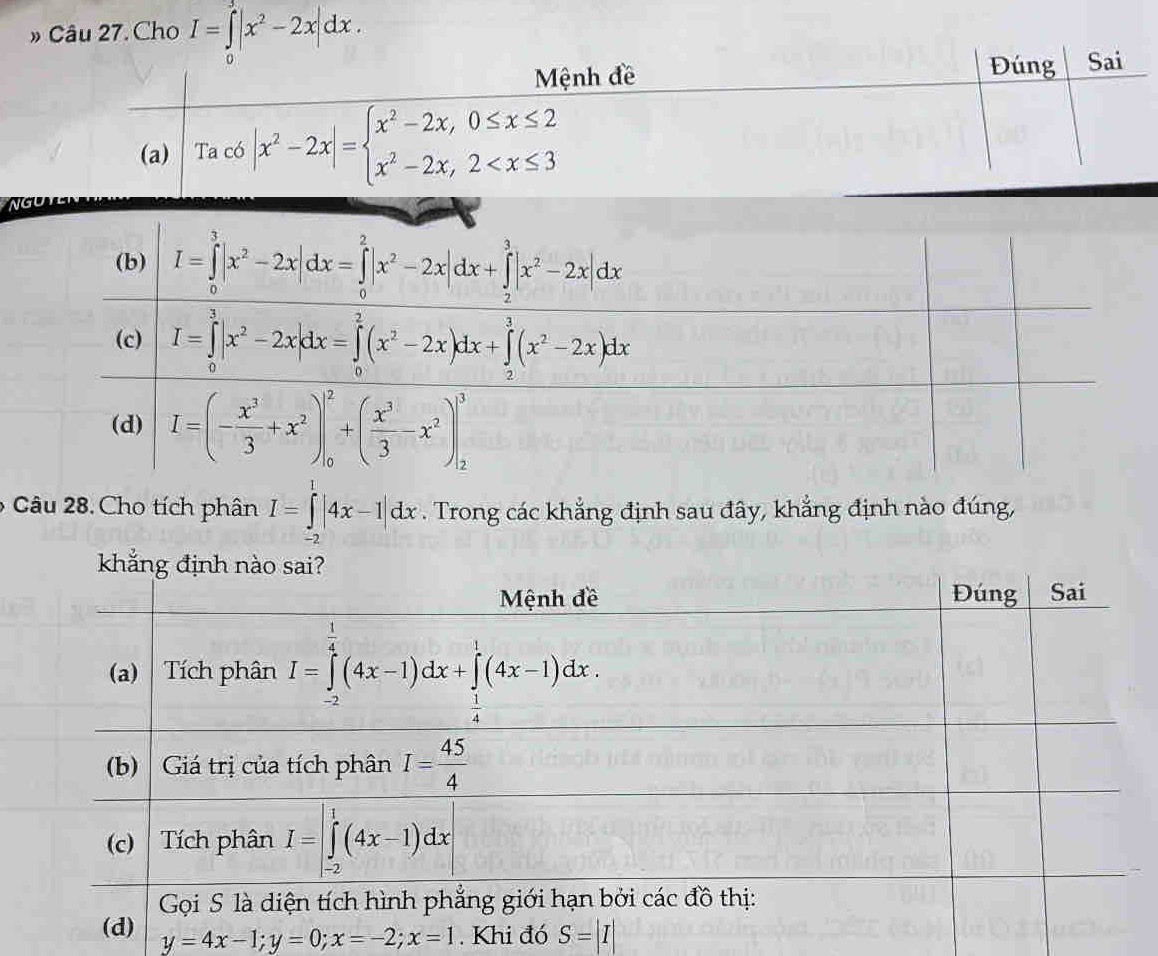 » Câu 27. Cho I = ∫₀³ |x² − 2x| dx.
Mệnh đề Đúng Sai
(a) Ta có |x² − 2x| = { x² − 2x, 0 ≤ x ≤ 2
x² − 2x, 2 < x ≤ 3
(b) I = ∫₀³ |x² − 2x| dx = ∫₀² |x² − 2x| dx + ∫₂³ |x² − 2x| dx
(c) I = ∫₀³ |x² − 2x| dx = ∫₀² (x² − 2x) dx + ∫₂³ (x² − 2x) dx
(d) I = (−x³/3 + x²)|₀² + (x³/3 − x²)|₂³
Câu 28. Cho tích phân I = ∫₋₂¹ |4x − 1| dx. Trong các khẳng định sau đây, khẳng định nào đúng,
khẳng định nào sai?
Mệnh đề Đúng Sai
(a) Tích phân I = ∫₋₂^(1/4) (4x − 1) dx + ∫_(1/4)^1 (4x − 1) dx.
(b) Giá trị của tích phân I = 45/4
(c) Tích phân I = |∫₋₂¹ (4x − 1) dx|
(d) Gọi S là diện tích hình phẳng giới hạn bởi các đồ thị:
y = 4x − 1; y = 0; x = −2; x = 1. Khi đó S = |I|